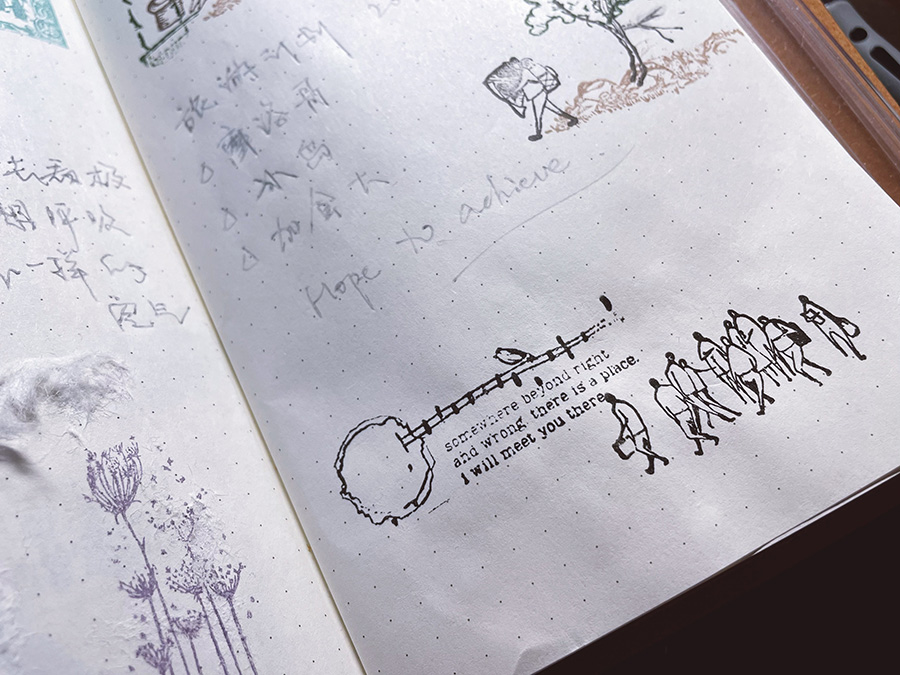 呼吸
一样的
空气
旅游计划
△ 摩洛哥
△ 冰岛
△ 加拿大
Hope to achieve
somewhere beyond right
and wrong, there is a place.
i will meet you there.